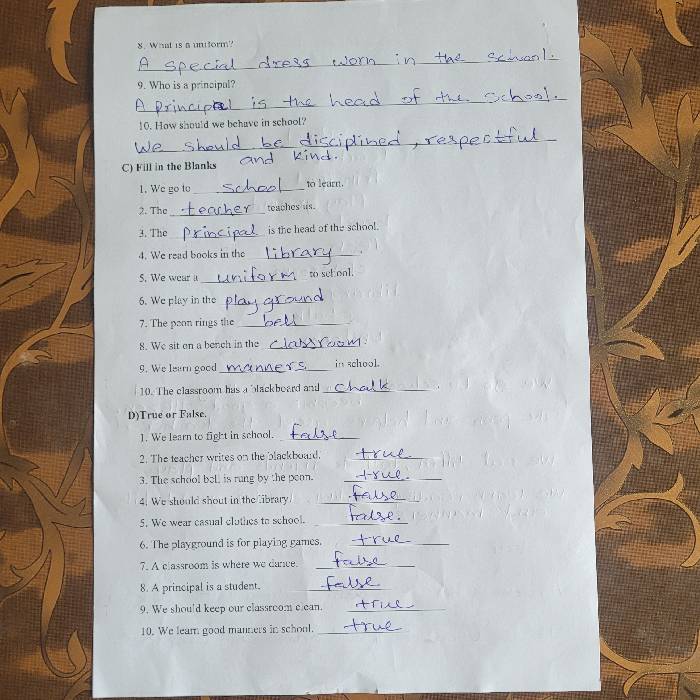 8. What is a uniform?
A special dress worn in the school.
9. Who is a principal?
A principal is the head of the school.
10. How should we behave in school?
We should be disciplined, respectful
and kind.
C) Fill in the Blanks
1. We go to school to learn.
2. The teacher teaches us.
3. The principal is the head of the school.
4. We read books in the library.
5. We wear a uniform to school.
6. We play in the play ground
7. The peon rings the bell
8. We sit on a bench in the classroom.
9. We learn good manners in school.
10. The classroom has a blackboard and chalk
D)True or False.
1. We learn to fight in school. false
2. The teacher writes on the blackboard. true
3. The school bell is rung by the peon. true.
4. We should shout in the library. false
5. We wear casual clothes to school. false.
6. The playground is for playing games. true
7. A classroom is where we dance. false
8. A principal is a student. false
9. We should keep our classroom clean. true
10. We learn good manners in school. true